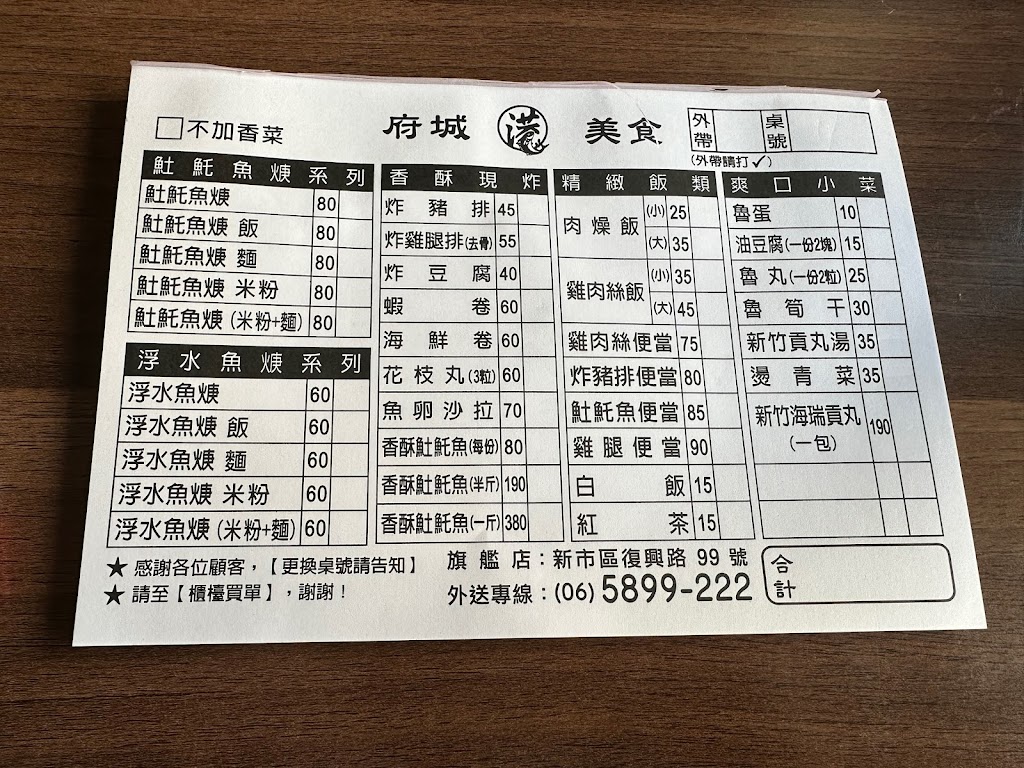 不加香菜
府城 港 美食
外帶 桌號
(外帶請打✓)
魠魠魚焿系列
魠魠魚焿 80
魠魠魚焿 飯 80
魠魠魚焿 麵 80
魠魠魚焿 米粉 80
魠魠魚焿 (米粉+麵) 80
浮水魚焿系列
浮水魚焿 60
浮水魚焿 飯 60
浮水魚焿 麵 60
浮水魚焿 米粉 60
浮水魚焿 (米粉+麵) 60
香酥現炸
炸豬排 45
炸雞腿排(去骨) 55
炸豆腐 40
蝦卷 60
海鮮卷 60
花枝丸(3粒) 60
魚卵沙拉 70
香酥魠魠魚(每份) 80
香酥魠魠魚(半斤) 190
香酥魠魠魚(一斤) 380
精緻飯類
肉燥飯 (小) 25
(大) 35
雞肉絲飯 (小) 35
(大) 45
雞肉絲便當 75
炸豬排便當 80
魠魠魚便當 85
雞腿便當 90
白飯 15
紅茶 15
爽口小菜
魯蛋 10
油豆腐(一份2塊) 15
魯丸(一份2粒) 25
魯筍干 30
新竹貢丸湯 35
燙青菜 35
新竹海瑞貢丸 190
(一包)
★ 感謝各位顧客,【更換桌號請告知】
★ 請至【櫃檯買單】,謝謝!
旗艦店:新市區復興路 99 號
外送專線:(06) 5899-222
合計